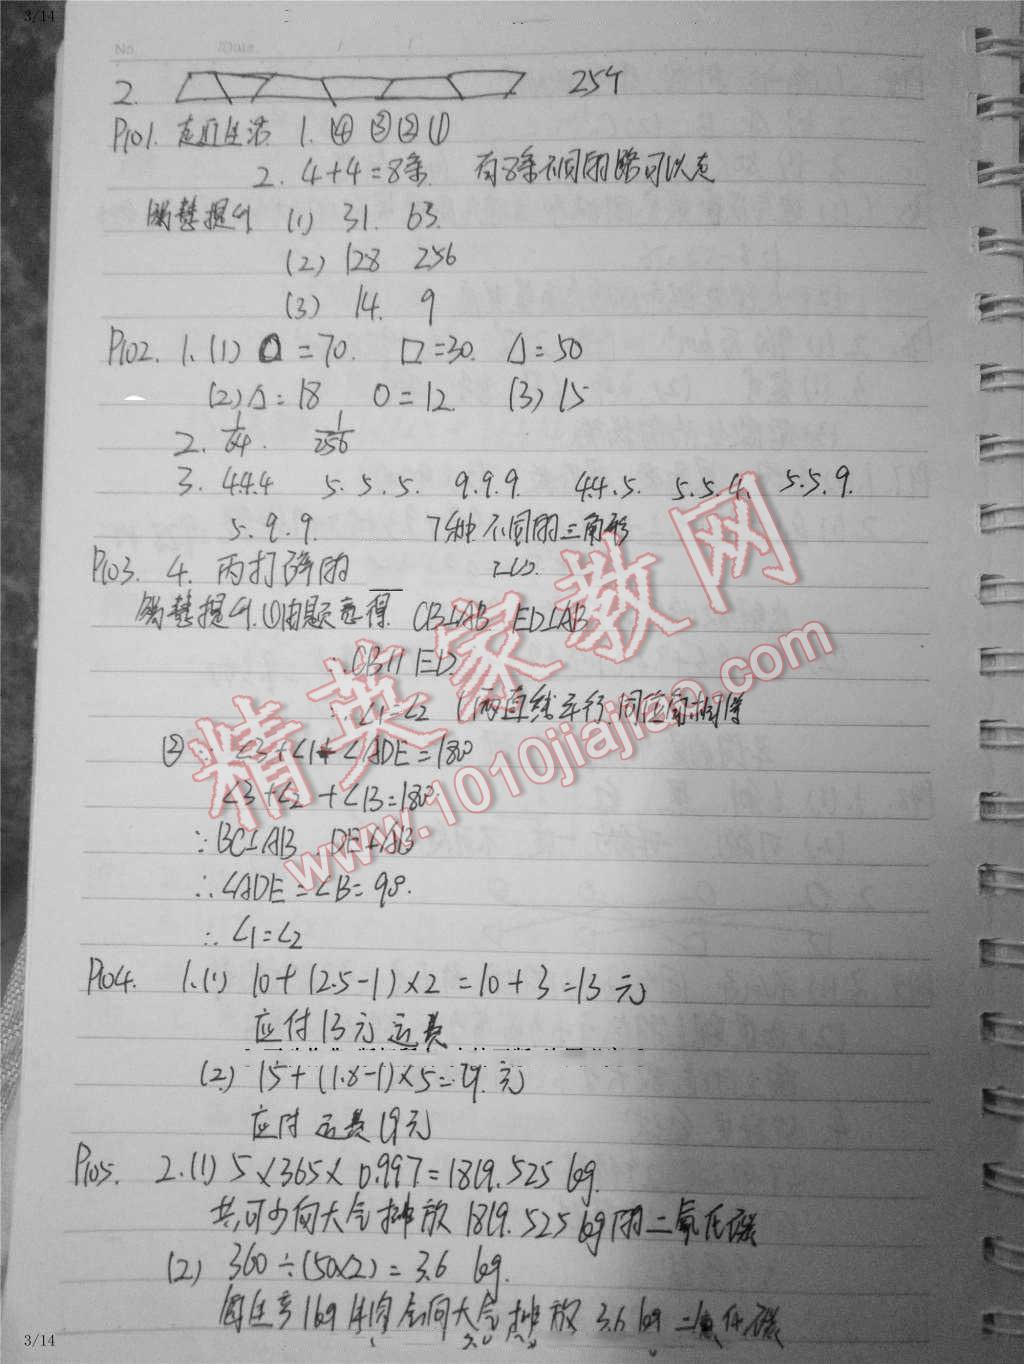 3/14
No.
Date.
2. 254
P101. 走近生活 1. ④ ③ ② ①
2. 4+4=8条. 有8条不同的路可以走
(1) 31. 63.
(2) 128 256
(3) 14. 9
P102. 1. (1) O=70. □=30. △=50
(2) △=18 O=12. (3) 15
2. 1/64. 1/256
3. 4.4.4 5.5.5. 9.9.9. 4.4.5. 5.5.4. 5.5.9.
5.9.9. 7种不同的三角形
P103. 4. 丙打碎的
(1)由题意得. CB⊥AB ED⊥AB
∴CB∥ED.
∴∠1=∠2 (两直线平行 同位角相等
(2) ∵∠3+∠1+∠ADE=180
∠3+∠2+∠B=180.
∵BC⊥AB. DE⊥AB
∴∠ADE=∠B=90.
∴∠1=∠2
P104. 1. (1) 10+(2.5-1)×2=10+3=13元
应付13元运费
(2) 15+(1.8-1)×5=19.元
应付运费19元
P105. 2. (1) 5×365×0.997=1819.525kg.
共可少向大气排放1819.525kg的二氧化碳
(2) 360÷(50×2)=3.6 kg.
1kg牛肉会向大气排放3.6kg二氧化碳
精英家教网
www.1010jiajiao.com
3/14